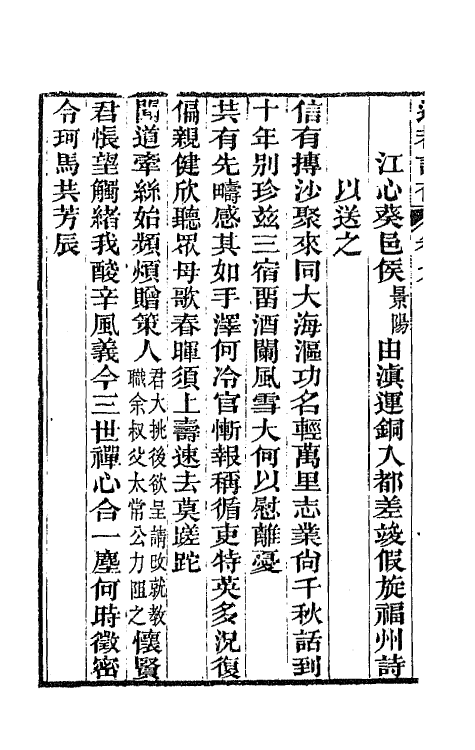 江心葵邑侯景陽由滇運銅入都差竣假旋福州詩
以送之
信有摶沙聚來同大海漚功名輕萬里志業尙千秋話到
十年別珍玆三宿畱酒闌風雪大何以慰離憂
共有先疇感其如手澤何冷官慚報稱循吏特英多況復
偏親健欣聽眾母歌春暉須上壽速去莫蹉跎
聞道牽絲始頻煩贈策人君大挑後欲呈請改就教職余叔父太常公力阻之懷賢
君悵望觸緒我酸辛風義今三世禪心合一塵何時徵密
令珂馬共芳辰